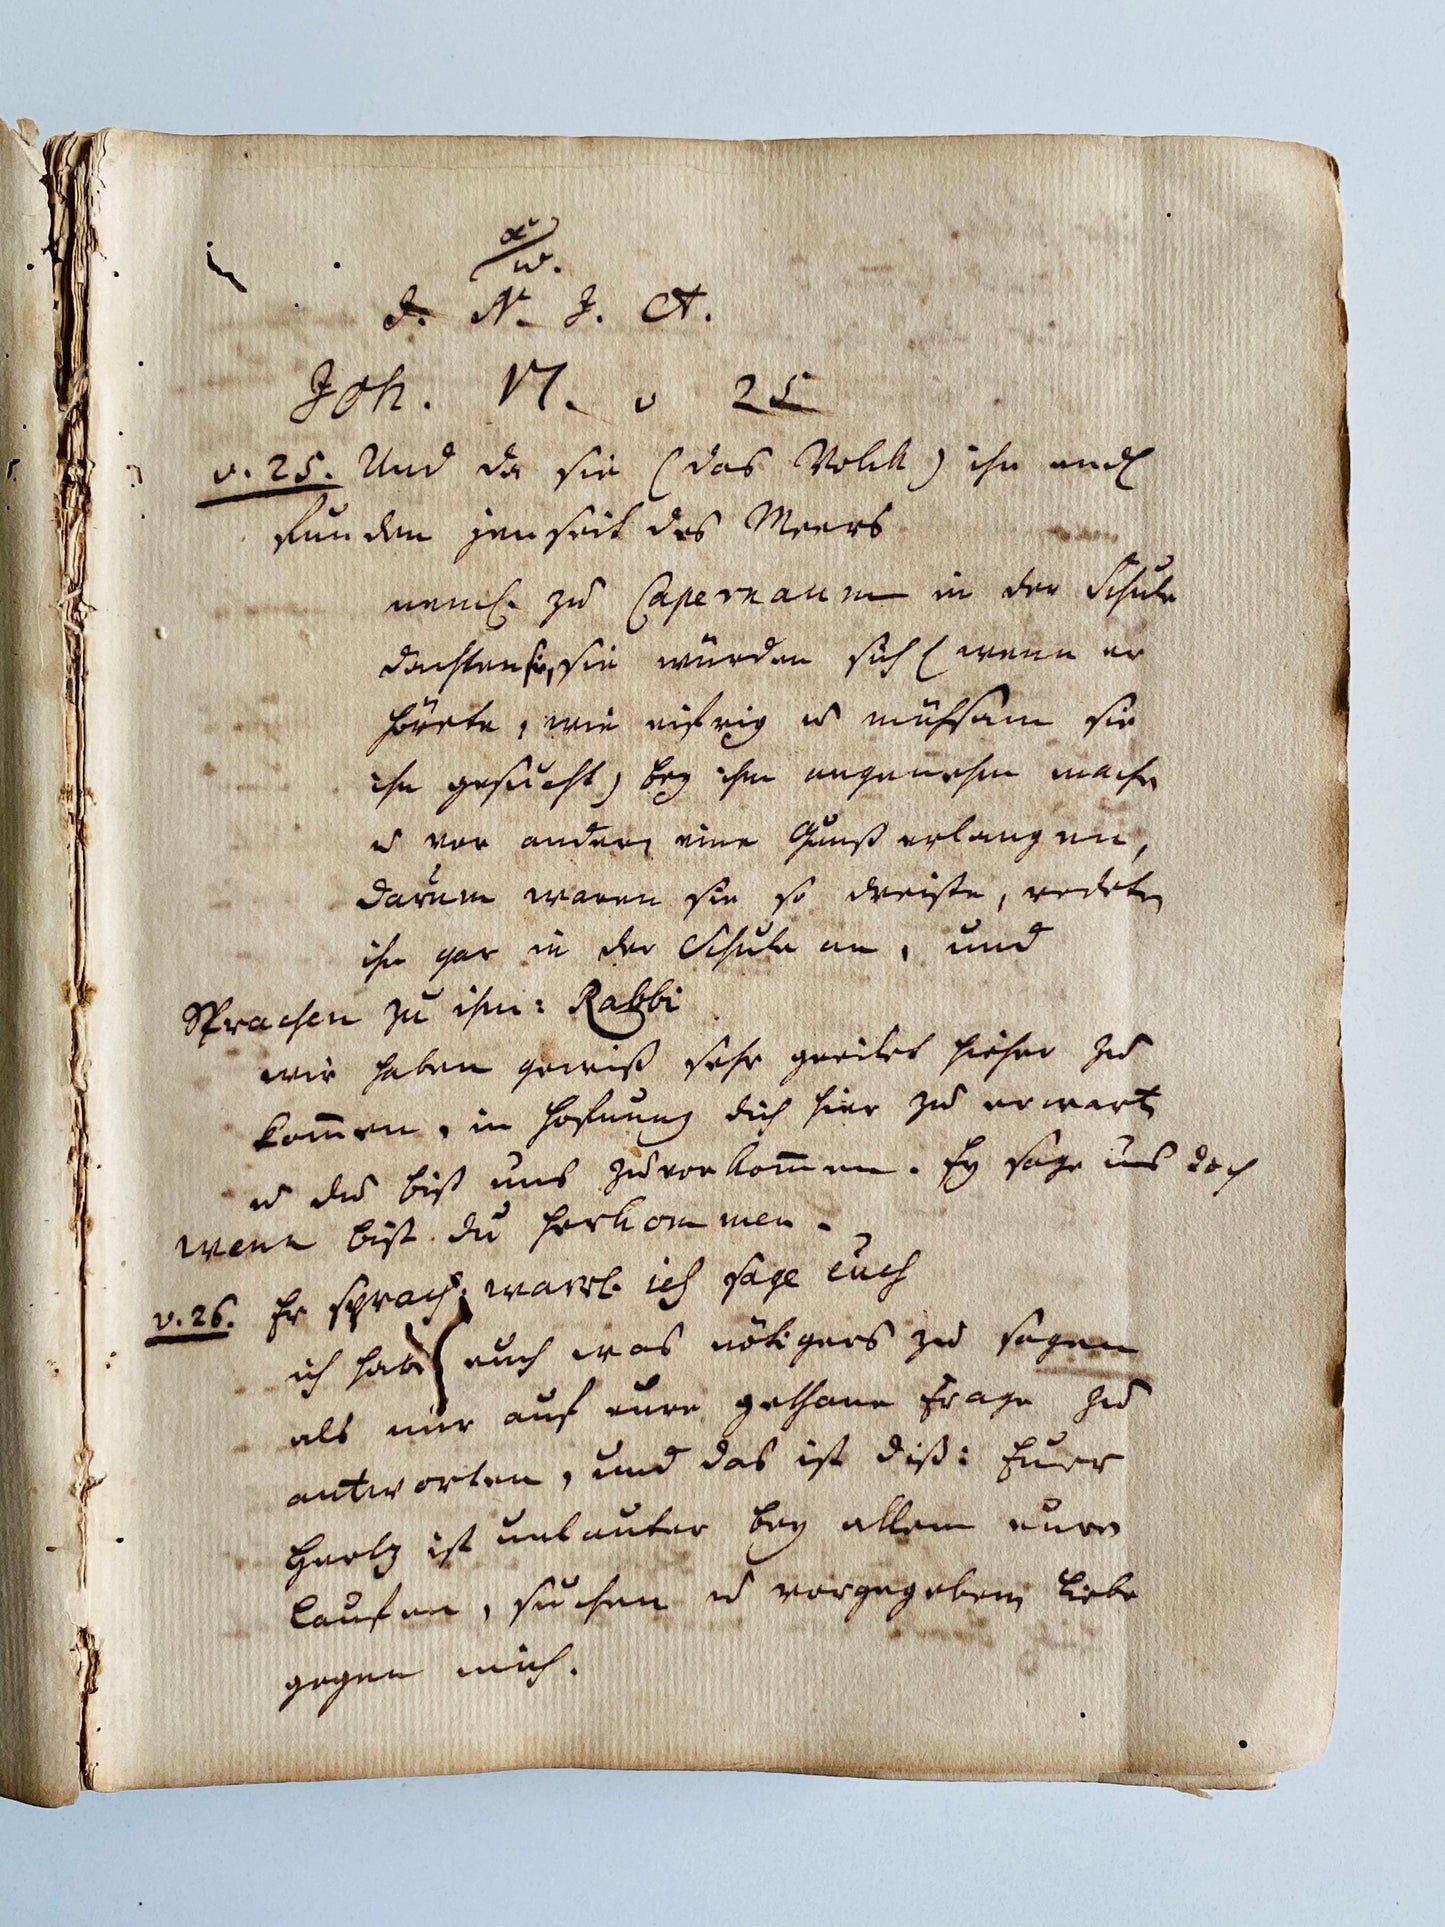 α/ω.
J. N. J. A.
Joh. VI. v 25
v. 25. Und da sie (das Volck) ihn endl
funden jenseit des Meers
neml. zu Capernaum in der Schule
dachten sie, sie würden sich (wenn er
hörete, wie eifrig u mühsam sie
ihn gesucht) bey ihm angenehm mache
u vor andern eine Gunst erlangen,
darum waren sie so dreiste, redeten
ihn gar in der Schule an, und
Sprachen zu ihm: Rabbi
wir haben gewiß sehr geeilet hieher zu
kom̅en, in Hofnung dich hier zu erwarten
u du bist uns zuvorkom̅en. Ey sage uns doch
wenn bist du herkommen.
v. 26. Er sprach: warrl. ich sage euch
ich habe euch was nötigers zu sagen
als nur auf eure gethane Frage zu
antworten, und das ist diß: Euer
Hertz ist unlauter bey allem euren
Laufen, suchen u vorgegebenen Liebe
gegen mich.